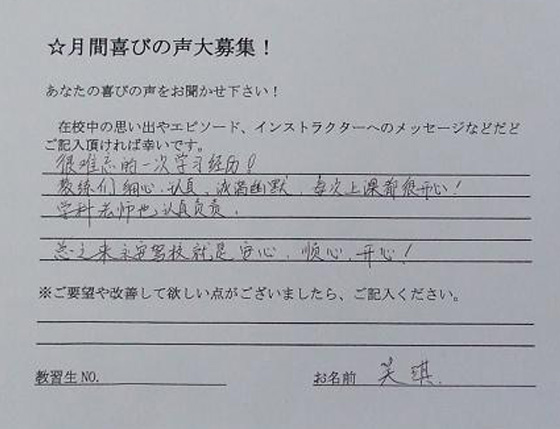 ☆月間喜びの声大募集！
あなたの喜びの声をお聞かせ下さい！
在校中の思い出やエピソード、インストラクターへのメッセージなどだど
ご記入頂ければ幸いです。
很难忘的一次学习经历！
教练们细心、认真、诙谐幽默，每次上课都很开心！
学科老师也认真负责．
总之来永安驾校就是安心、顺心、开心！
※ご要望や改善して欲しい点がございましたら、ご記入ください。
教習生NO.
お名前 吴琪